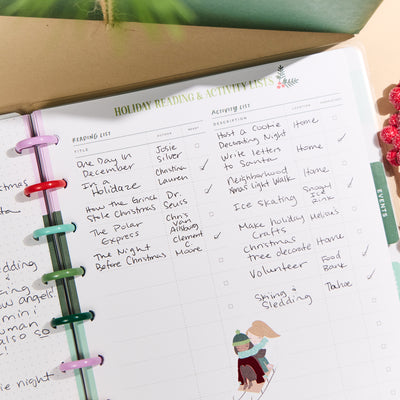 HOLIDAY READING & ACTIVITY LISTS
READING LIST
TITLE
AUTHOR
One Day in December
Josie Silver
In a Holidaze
Christina Lauren
How the Grinch Stole Christmas
Dr. Seuss
The Polar Express
Chris Van Allsburg
The Night Before Christmas
Clement C. Moore
ACTIVITY LIST
DESCRIPTION
LOCATION
Host a Cookie Decorating Night
Home
Write letters to Santa
Home
Neighborhood Xmas Light Walk
Home
Ice Skating
Snowy! Ice Rink
Make holiday Crafts
christmas tree decorate
Home
Volunteer
Food Bank
Skiing & Sledding
Tahoe
EVENTS